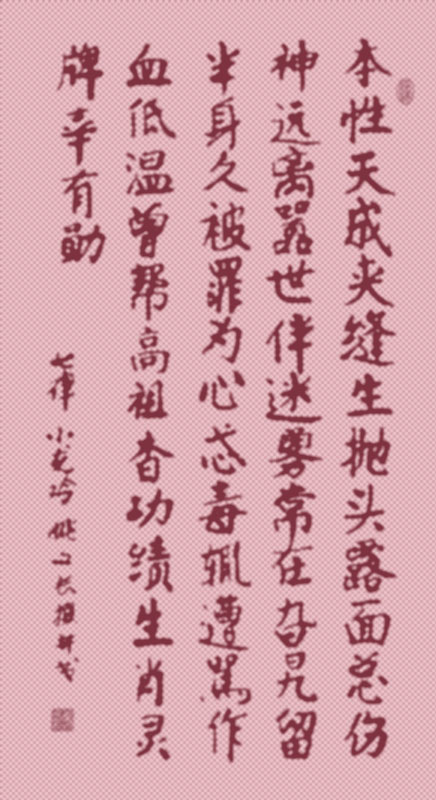 本性天成夹缝生抛头露面总伤
神远离嚣世伴迷雾常在旮旯留
半身久被罪为心忒毒辄遭骂作
血低温曾帮高祖杳功绩生肖灵
牌幸有勋
七律 小龙吟